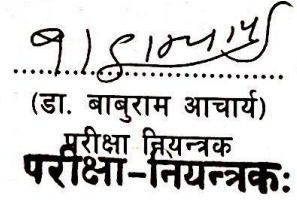 (डा. बाबुराम आचार्य)
परीक्षा नियन्त्रक
परीक्षा-नियन्त्रकः